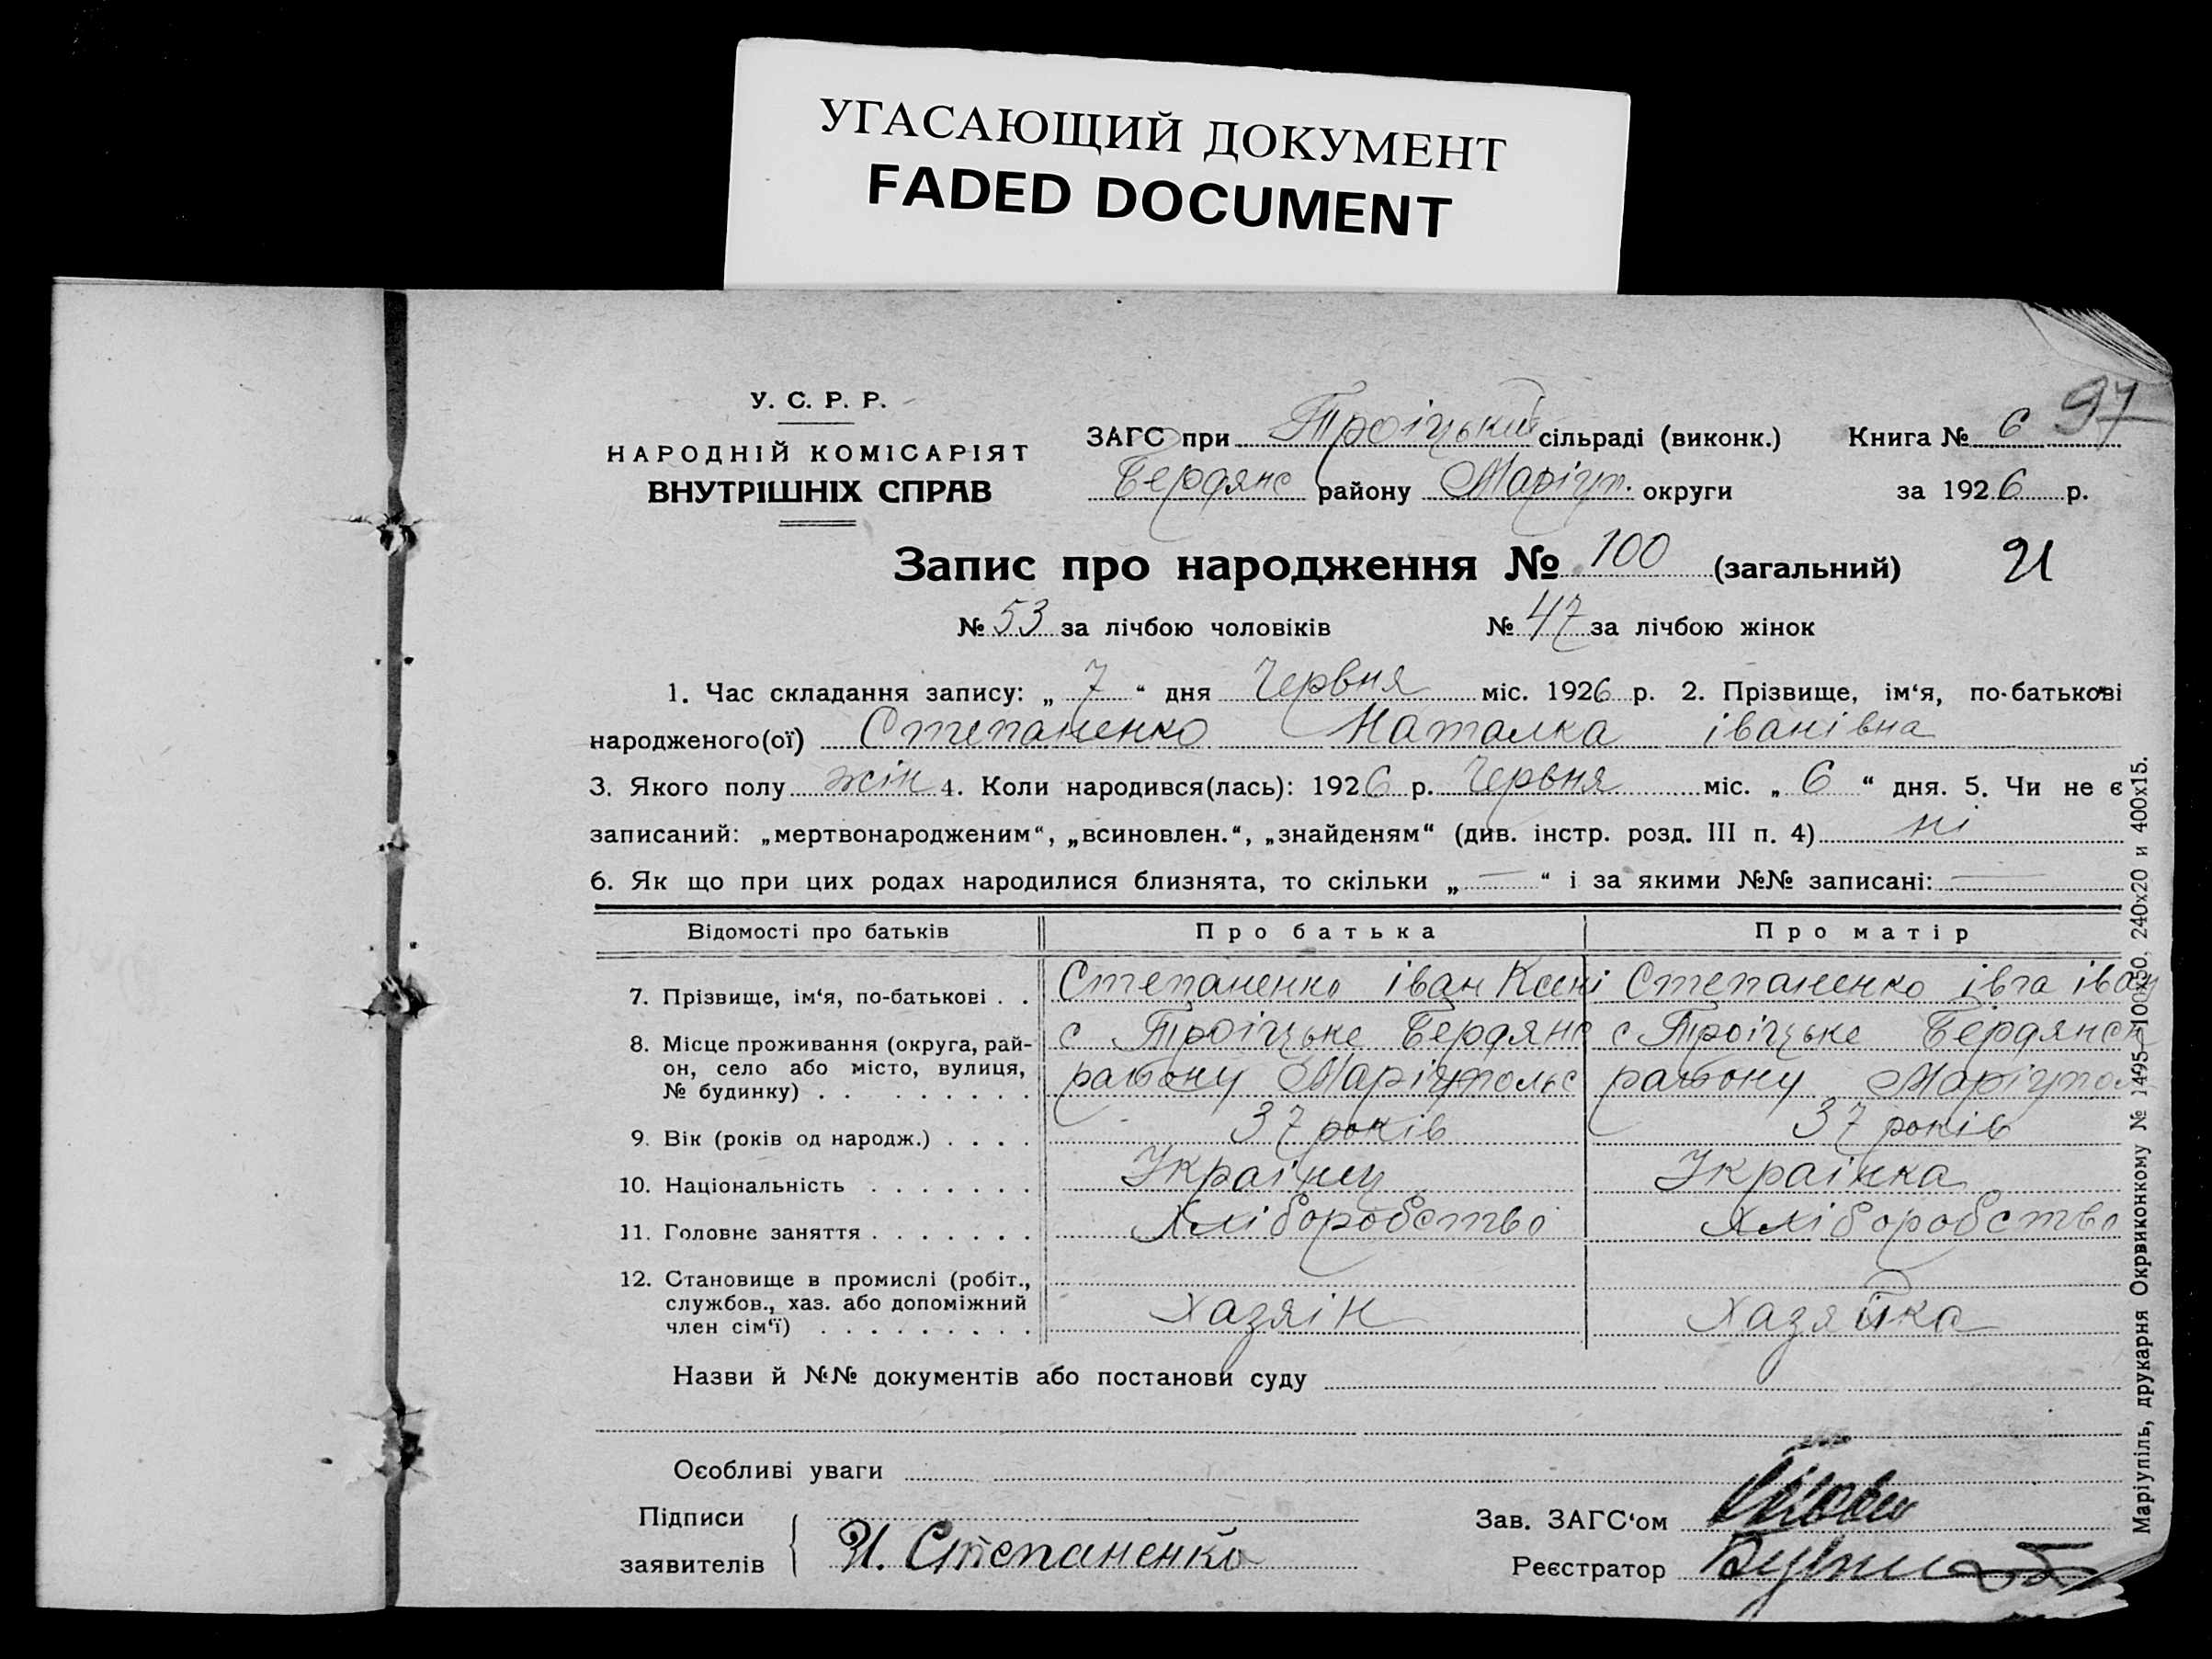 УГАСАЮЩИЙ ДОКУМЕНТ
FADED DOCUMENT
У. С. Р. Р.
НАРОДНІЙ КОМІСАРІЯТ
ВНУТРІШНІХ СПРАВ
ЗАГС при Троіцький сільраді (виконк.) Книга № 6 97
Бердянс району Маріуп. округи за 1926 р.
Запис про народження № 100 (загальний) 21
№ 53 за лічбою чоловіків № 47 за лічбою жінок
1. Час складання запису: „ 7 “ дня Червня міс. 1926 р. 2. Прізвище, ім‘я, по-батькові
народженого(ої) Степаненко Наталка іванівна
3. Якого полу жін 4. Коли народився(лась): 1926 р. Червня міс. „ 6 “ дня. 5. Чи не є
записаний: „мертвонародженим“, „всиновлен.“, „знайденям“ (див. інстр. розд. III п. 4) ні
6. Як що при цих родах народилися близнята, то скільки „ — “ і за якими №№ записані: —
Відомості про батьків Про батька Про матір
7. Прізвище, ім‘я, по-батькові . . Степаненко іван Степаненко івга іван
8. Місце проживання (округа, рай-
он, село або місто, вулиця,
№ будинку) . . . . . . . . .
с Троіцьке Бердянс с Троіцьке Бердянськ
району Маріупольс району Маріупол
9. Вік (років од народж.) . . . . 37 років 37 років
10. Національність . . . . . . . Украінц Украінка
11. Головне заняття . . . . . . . Хліборобство Хліборобство
12. Становище в промислі (робіт.,
службов., хаз. або допоміжний
член сім‘ї) . . . . . . . . . Хазяін Хазяйка
Назви й №№ документів або постанови суду
Особливі уваги
Підписи
заявителів И. Степаненко
Зав. ЗАГС‘ом
Реєстратор
Маріупіль, друкарня Окрвиконкому № 1495—100х50, 240х20 и 400х15.